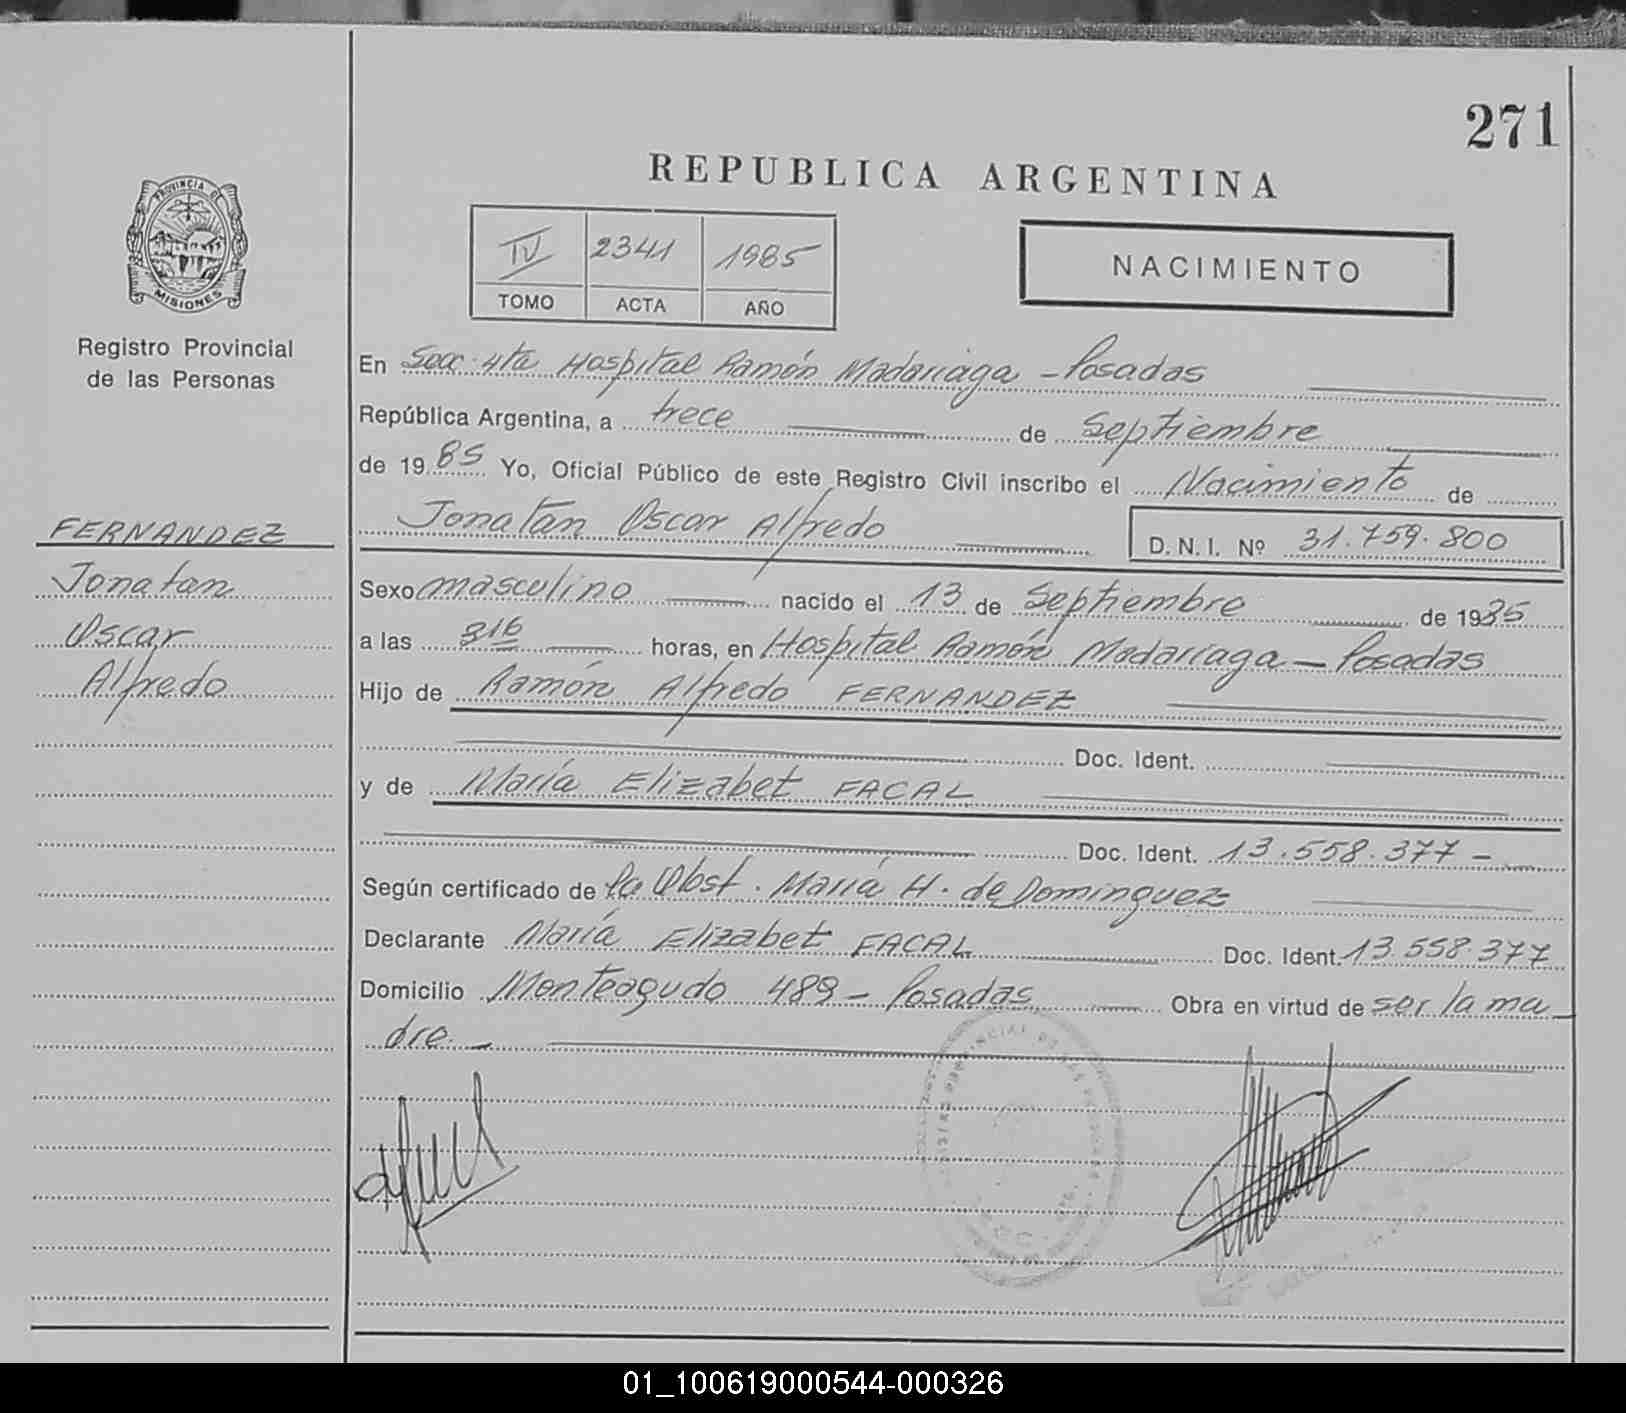 271
REPUBLICA ARGENTINA
PROVINCIA DE
MISIONES
Registro Provincial
de las Personas
IV 2341 1985
TOMO ACTA AÑO
NACIMIENTO
En Secc. 4ta Hospital Ramón Madariaga - Posadas
República Argentina, a trece de Septiembre
de 1985 Yo, Oficial Público de este Registro Civil inscribo el Nacimiento de
Jonatan Oscar Alfredo D.N.I. Nº 31.759.800
FERNANDEZ
Jonatan
Oscar
Alfredo
Sexo masculino nacido el 13 de Septiembre de 1985
a las 816 horas, en Hospital Ramón Madariaga - Posadas
Hijo de Ramón Alfredo FERNANDEZ
Doc. Ident.
y de María Elizabet FACAL
Doc. Ident. 13.558.377 -
Según certificado de la Obst. María H. de Dominguez
Declarante María Elizabet FACAL Doc. Ident. 13.558.377
Domicilio Monteagudo 489 - Posadas Obra en virtud de ser la ma
dre. -
01_100619000544-000326